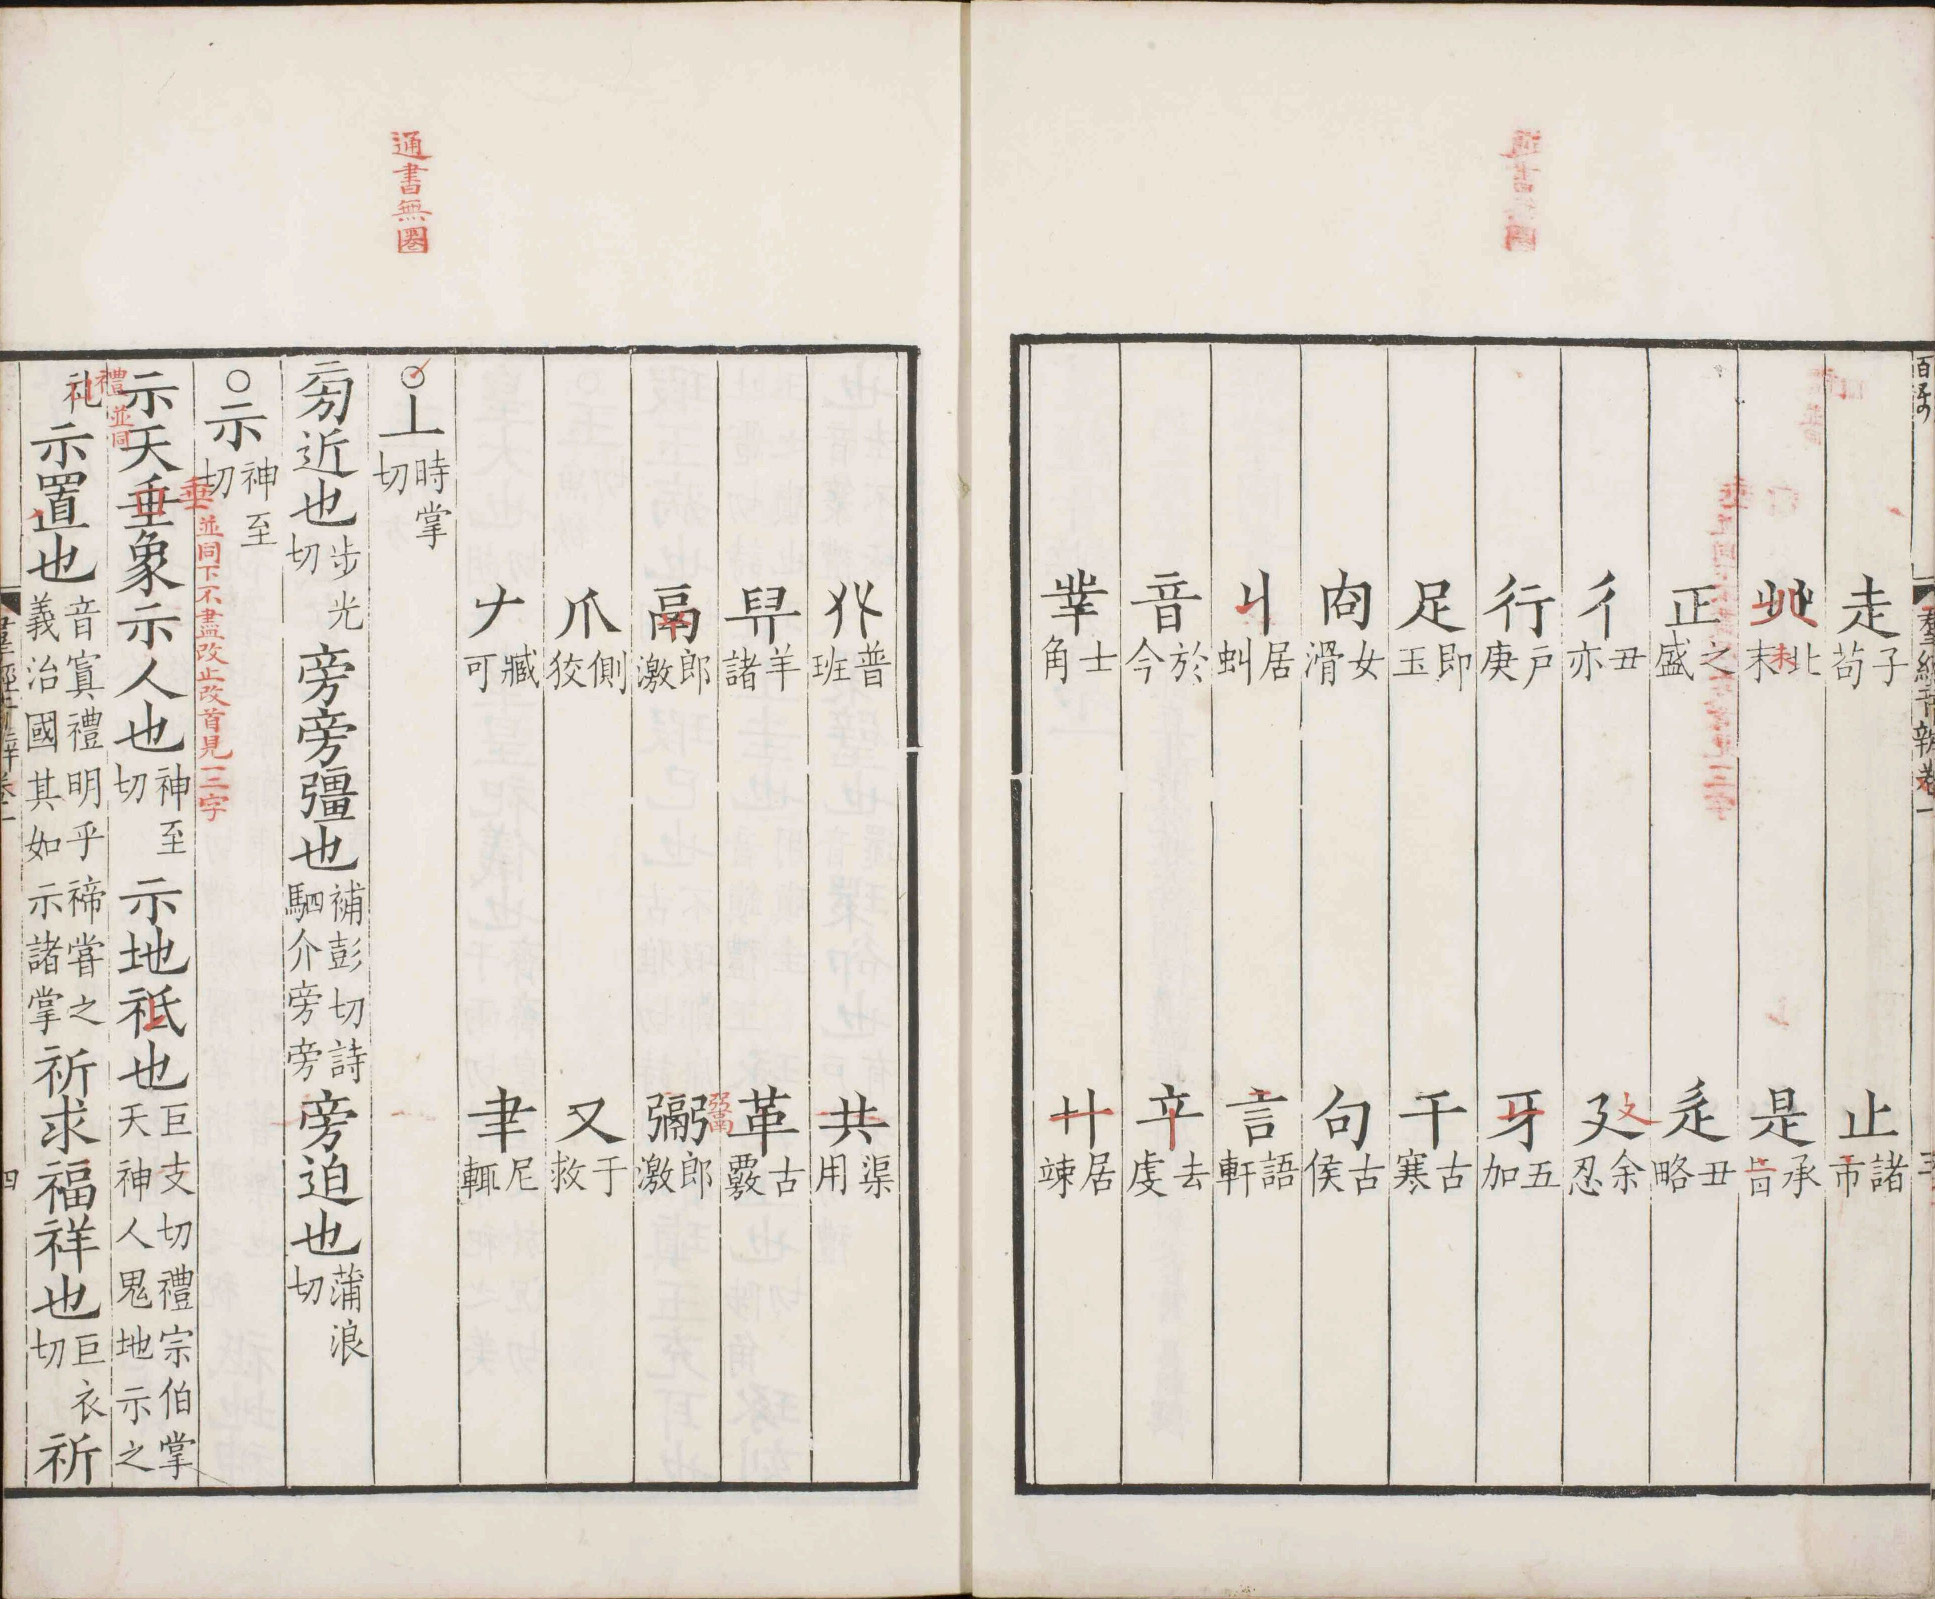 走子苟 止諸市
癶北末 是承旨
正之盛 辵丑略
彳丑亦 廴余忍
行戶庚 牙五加
足即玉 干古寒
㕯女滑 句古侯
丩居虯 言語軒
音於今 䇂去虔
丵士角 廾居竦
羣經音辨卷一
三
通書無圈
𠬜普班 共渠用
舁羊諸 革古覈
鬲郎激 䰜郎激
爪側狡 又于救
𠂇臧可 聿尼輒
○丄時掌切
旁近也步光切旁旁彊也補彭切詩駟介旁旁旁迫也蒲浪切
○示神至切
垂並同下不盡改止改首見一二字
示天垂象示人也神至切示地祇也巨支切禮宗伯掌天神人鬼地示之
禮並同
礼示置也音寘禮明乎禘嘗之義治國其如示諸掌祈求福祥也巨衣切祈
羣經音辨卷一
四